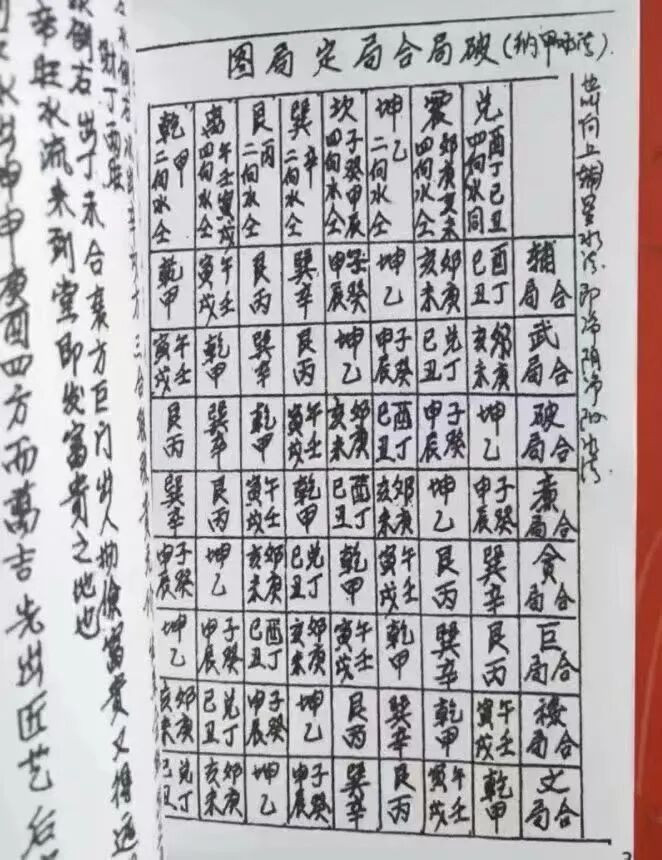 破局合局定局图(纳甲水法)
向上辅星水法即净阴净阳水法
兑酉丁巳丑四向水同
震卯庚亥未四向水仝
坤乙二向水仝
坎子癸申辰四向水仝
巽辛二向水仝
艮丙二向水仝
离午壬寅戌四向水仝
乾甲二向水仝
辅局合 酉丁巳丑 卯庚亥未 坤乙 子癸申辰 巽辛 艮丙 午壬寅戌 乾甲
武局合 卯庚亥未 兑丁巳丑 子癸申辰 坤乙 艮丙 巽辛 乾甲 午壬寅戌
破局合 坤乙 子癸申辰 酉丁巳丑 卯庚亥未 午壬寅戌 乾甲 巽辛 艮丙
廉局合 子癸申辰 坤乙 卯庚亥未 酉丁巳丑 乾甲 午壬寅戌 艮丙 巽辛
贪局合 巽辛 艮丙 午壬寅戌 乾甲 兑丁巳丑 卯庚亥未 坤乙 子癸申辰
巨局合 艮丙 巽辛 乾甲 午壬寅戌 卯庚亥未 酉丁巳丑 子癸申辰 坤乙
禄局合 午壬寅戌 乾甲 巽辛 艮丙 坤乙 子癸申辰 兑丁巳丑 卯庚亥未
文局合 乾甲 午壬寅戌 艮丙 巽辛 子癸申辰 坤乙 卯庚亥未 兑丁巳丑
财丁两旺
倒右出丁未合襄方巨门出人勤俭富贵又得
水流来到堂即发富贵之地也
水出坤申庚酉四方而万吉先出匠艺后